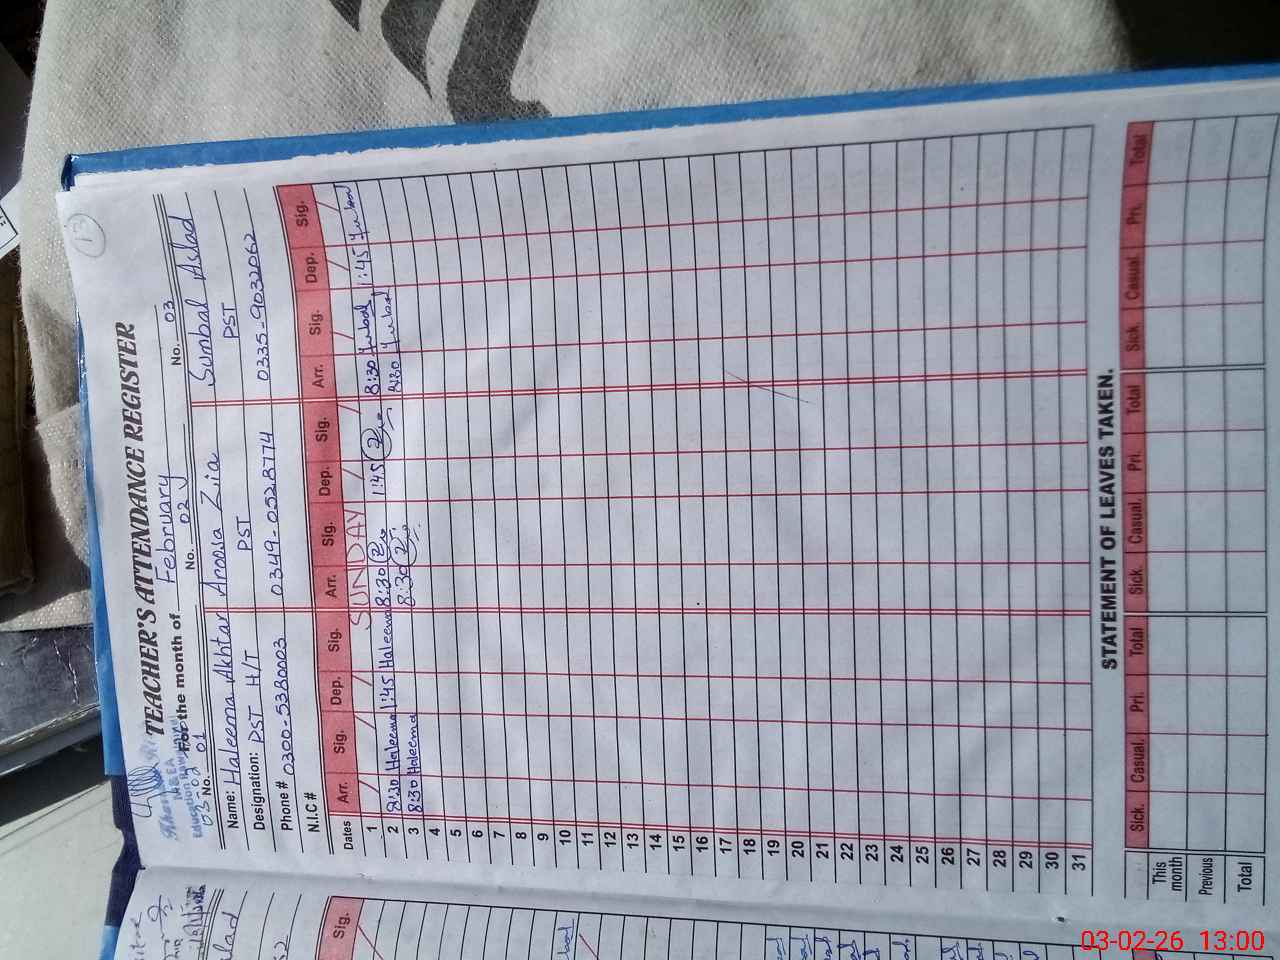 13
TEACHER'S ATTENDANCE REGISTER
For the month of February
M&EA
03-02
No. 01 No. 02 No. 03
Name: Haleema Akhtar Aroosa Zia Sumbal Aslad
Designation: PST H/T PST PST
Phone # 0300-5380003 0349-0528774 0335-9032062
N.I.C #
Dates Arr. Sig. Dep. Sig. Arr. Sig. Dep. Sig. Arr. Sig. Dep. Sig.
1 SUNDAY
2 8:30 Haleema 1:45 Haleema 8:30 1:45 8:30 1:45
3 8:30 Haleema 8:30 8:30
4
5
6
7
8
9
10
11
12
13
14
15
16
17
18
19
20
21
22
23
24
25
26
27
28
29
30
31
STATEMENT OF LEAVES TAKEN.
Sick. Casual. Pri. Total Sick. Casual. Pri. Total Sick. Casual. Pri. Total
This month
Previous
Total
Sig.
03-02-26 13:00